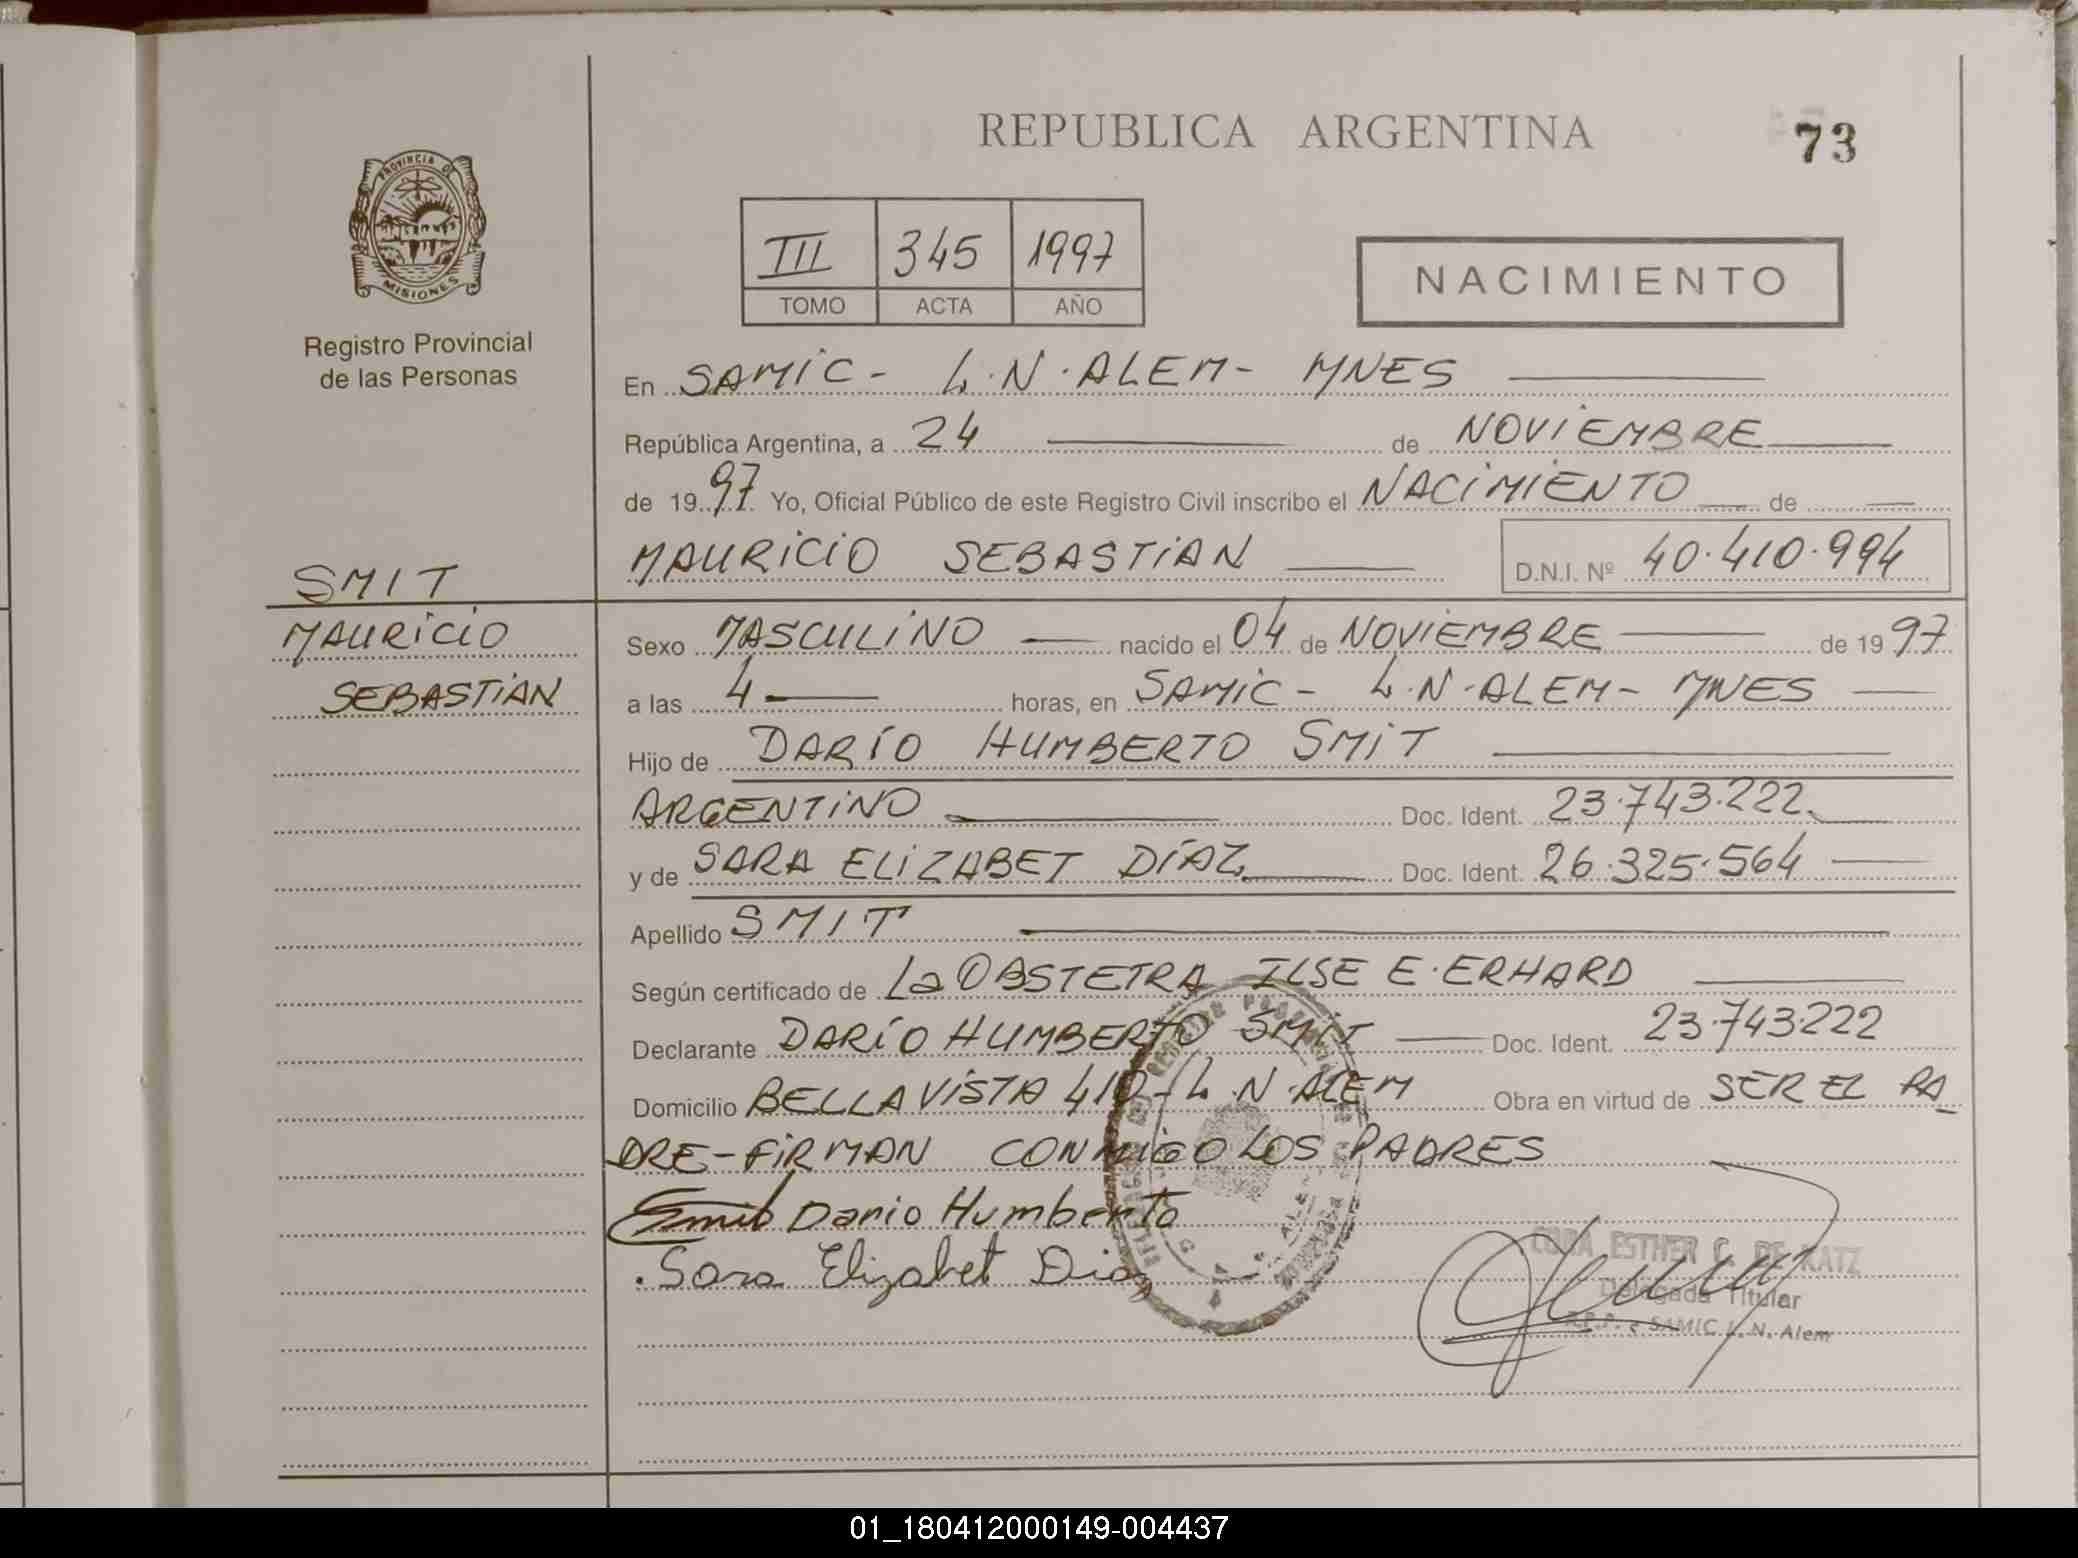 REPUBLICA ARGENTINA
73
PROVINCIA DE
MISIONES
Registro Provincial
de las Personas
III 345 1997
TOMO ACTA AÑO
NACIMIENTO
En SAMIC - L.N. ALEM - MNES
República Argentina, a 24 de NOVIEMBRE
de 1997 Yo, Oficial Público de este Registro Civil inscribo el NACIMIENTO de
MAURICIO SEBASTIAN D.N.I. Nº 40.410.994
SMIT
MAURICIO
SEBASTIAN
Sexo MASCULINO nacido el 04 de NOVIEMBRE de 1997
a las 4 horas, en SAMIC - L.N. ALEM - MNES
Hijo de DARÍO HUMBERTO SMIT
ARGENTINO Doc. Ident. 23.743.222
y de SARA ELIZABET DÍAZ Doc. Ident. 26.325.564
Apellido SMIT
Según certificado de La OBSTETRA ILSE E. ERHARD
Declarante DARÍO HUMBERTO SMIT Doc. Ident. 23.743.222
Domicilio BELLA VISTA 410 - L.N. ALEM Obra en virtud de SER EL PA_
DRE - FIRMAN CONMIGO LOS PADRES
Smit Dario Humberto
Sara Elizabet Diaz
CORA ESTHER C. DE KATZ
Delegada Titular
SAMIC L. N. Alem
01_180412000149-004437